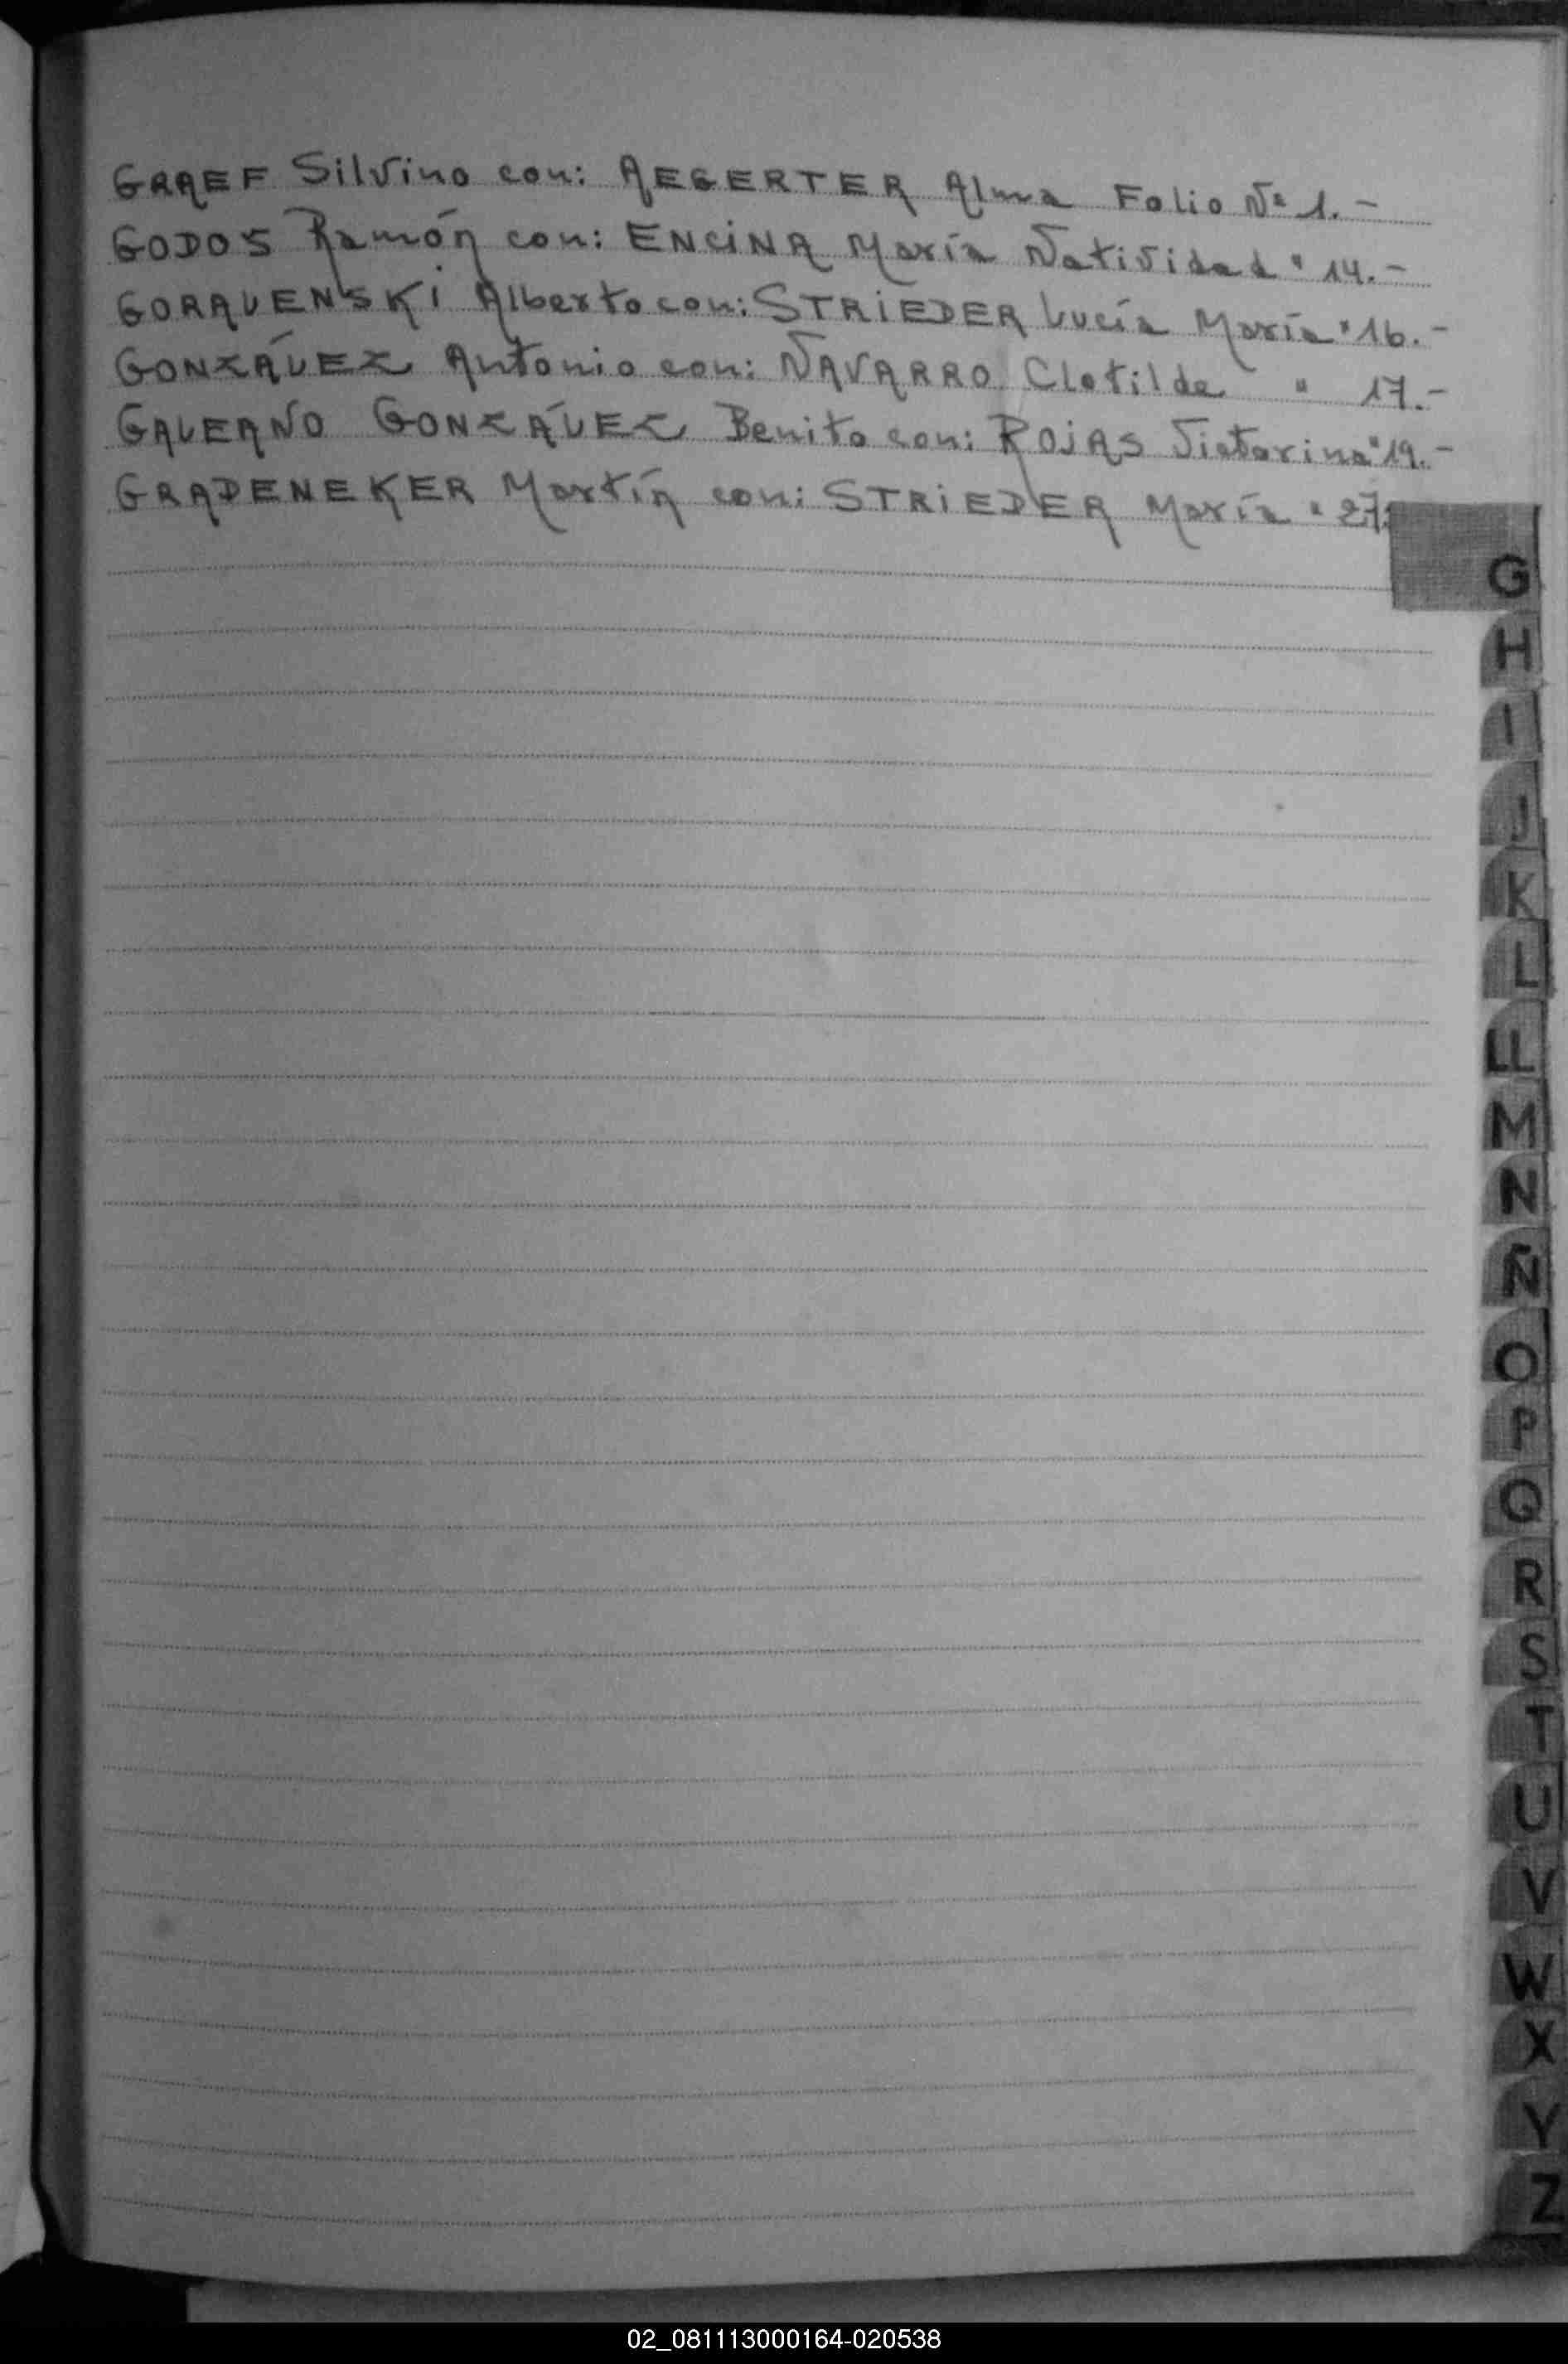 GRAEF Silvino con: AEGERTER Alma Folio Nº 1.-
GODOS Ramón con: ENCINA María Natividad " 14.-
GORALENSKI Alberto con: STRIEDER Lucía María " 16.-
GONZÁLEZ Antonio con: NAVARRO Clotilde " 17.-
GALEANO GONZÁLEZ Benito con: ROJAS Victorina " 19.-
GRADENEKER Martín con: STRIEDER María " 27.
G
H
I
J
K
L
LL
M
N
Ñ
O
P
Q
R
S
T
U
V
W
X
Y
Z
02_081113000164-020538